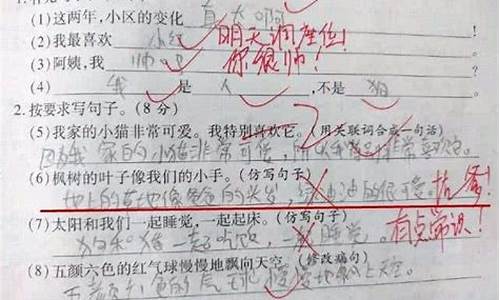 (1)这两年,小区的变化 真大啊
(2)我最喜欢 小红 明天调座位!
(3)阿姨,我 帅吧 你很帅!
(4) 我 是 人 ,不是 狗
2.按要求写句子。(8分)
(5)我家的小猫非常可爱。我特别喜欢它。(用关联词合成一句话)
因为我家的小猫非常可爱,所以我非常喜欢它。
(6)枫树的叶子像我们的小手。(仿写句子)
地上的草地像爸爸的头发,绿油油的很可爱。
(7)太阳和我们一起睡觉,一起起床。(仿写句子)
狗和猫一起吃饭,一起睡觉。 有点常识!
(8)五颜六色的红气球慢慢地飘向天空。(修改病句)
五颜六色的气球慢慢地飘上天空。